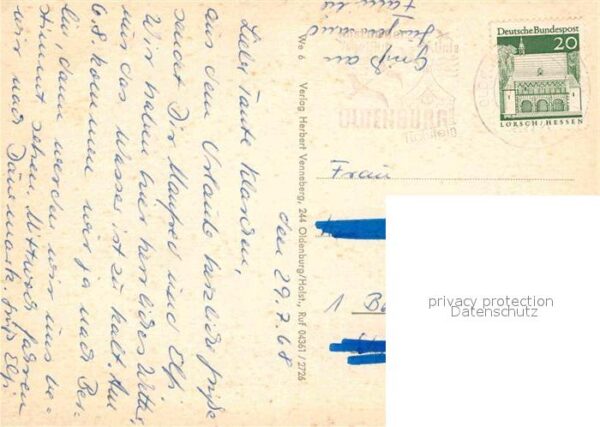 den 29.7.68
Liebe Tante Klärchen,
aus dem Urlaub herzliche Grüße
sendet Dir Manfred und Elfi.
Wir haben hier herrliches Wetter,
nur das Wasser ist zu kalt. Am
6.8. kommen wir ja nach Ber-
lin, dann werden wir uns be-
stimmt sehen. Mittwoch fahren
wir nach Dänemark. Gruß Elfi.
Gruß an
We 6 Verlag Herbert Venneberg, 244 Oldenburg/Holst., Ruf 04361/2726
Deutsche Bundespost
20
LORSCH/HESSEN
OLDENBURG
Frau
1 Be
privacy protection
Datenschutz